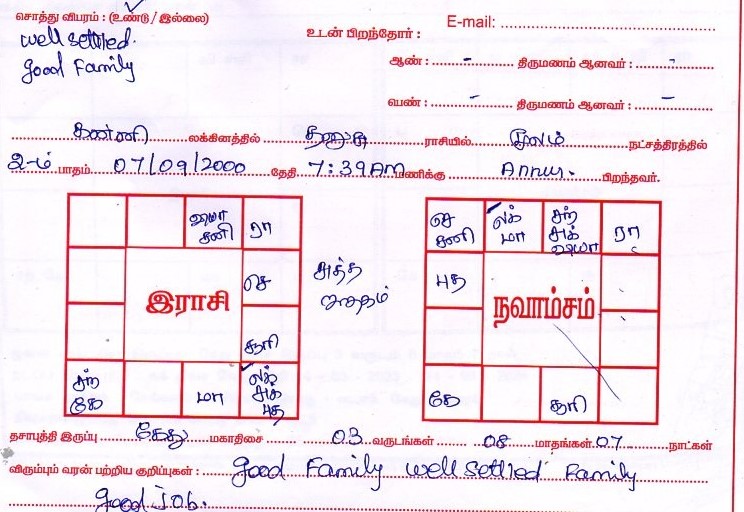 சொத்து விபரம் : (உண்டு / இல்லை)
E-mail:
well settled.
உடன் பிறந்தோர் :
good Family
ஆண் : - திருமணம் ஆனவர் : -
பெண் : - திருமணம் ஆனவர் : -
கன்னி லக்கினத்தில் தனுசு ராசியில் மூலம் நட்சத்திரத்தில்
2-ம் பாதம் 07/09/2000 தேதி 7:39AM மணிக்கு Annur. பிறந்தவர்.
வியா சனி
ரா
செ
இராசி
சூரி
சந் கே
மா
லக் சுக் புத
செ சனி
லக் மா
சந் சுக் வியா
ரா
புத
நவாம்சம்
கே
சூரி
தசாபுத்தி இருப்பு கேது மகாதிசை 03 வருடங்கள் 08 மாதங்கள் 07 நாட்கள்
விரும்பும் வரன் பற்றிய குறிப்புகள் : good Family well settled Family
good job.